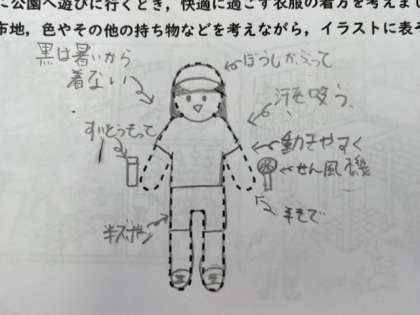 に公園へ遊びに行くとき，快適に過ごす衣服の着方を考えまし
市地，色やその他の持ち物などを考えながら，イラストに表そ
黒は暑いから
着ない
ぼうしかぶって
汗を吸う
すいとうもって
動きやすく
せん風機
半そで
半ズボン